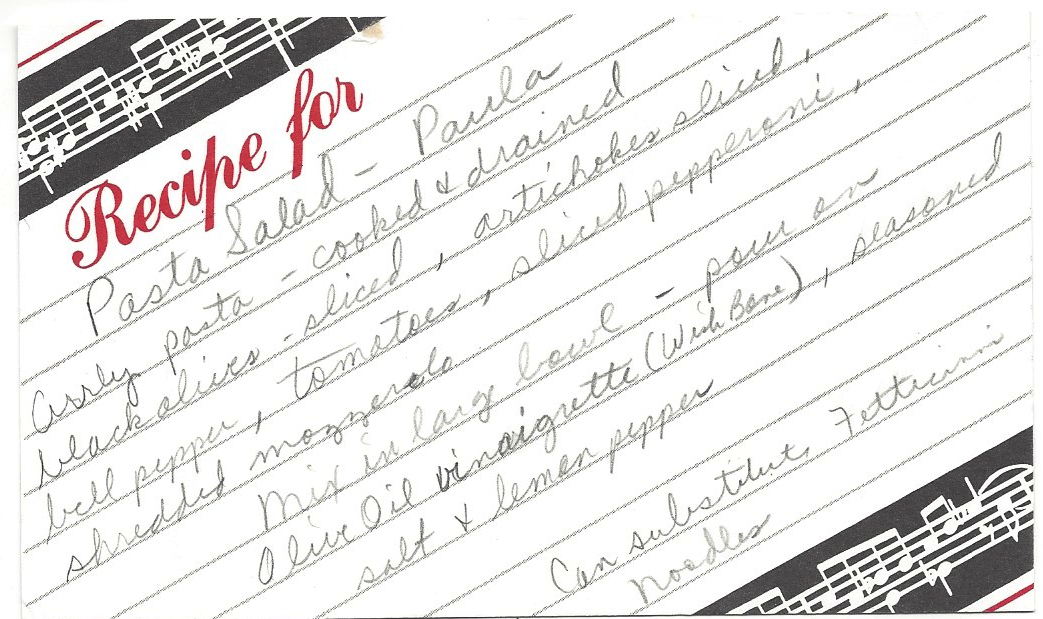 Recipe for
Pasta Salad - Paula
Curly pasta - cooked & drained
black olives - sliced, artichokes sliced,
bell pepper, tomatoes, sliced pepperoni,
shredded mozzerola
Mix in larg bowl - pour on
Olive Oil vinaigrette (Wish Bone), seasoned
salt & lemon pepper
Can substitute Fetticinni
noodles